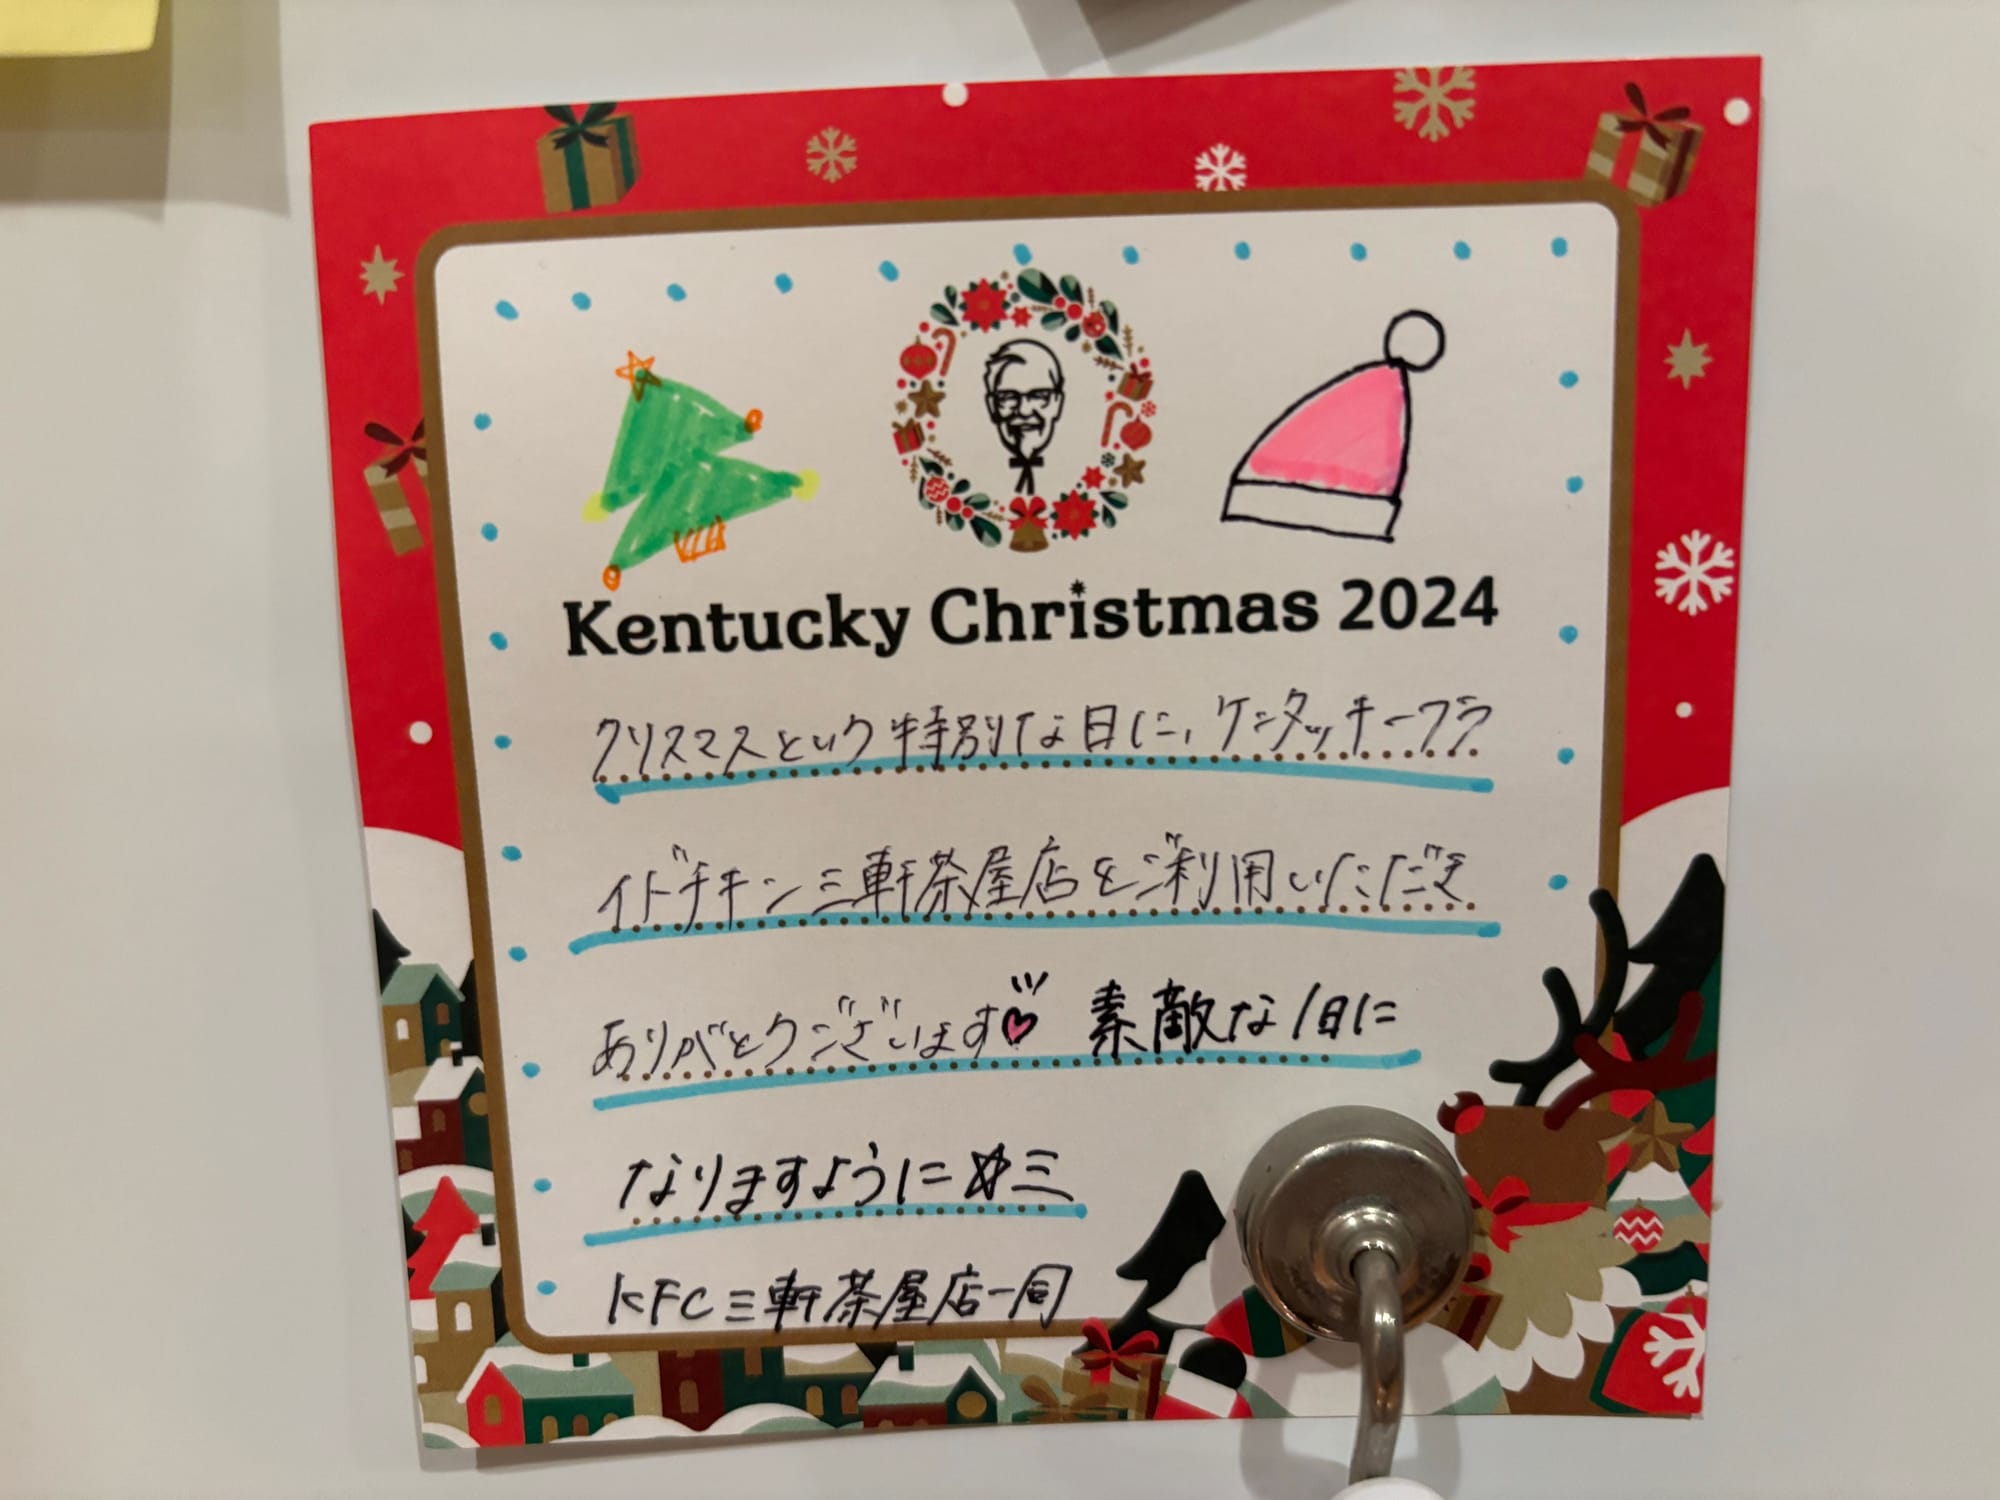 Kentucky Christmas 2024
クリスマスという特別な日に、ケンタッキーフラ
イドチキン三軒茶屋店をご利用いただき
ありがとうございます♡ 素敵な1日に
なりますように☆三
KFC三軒茶屋店一同